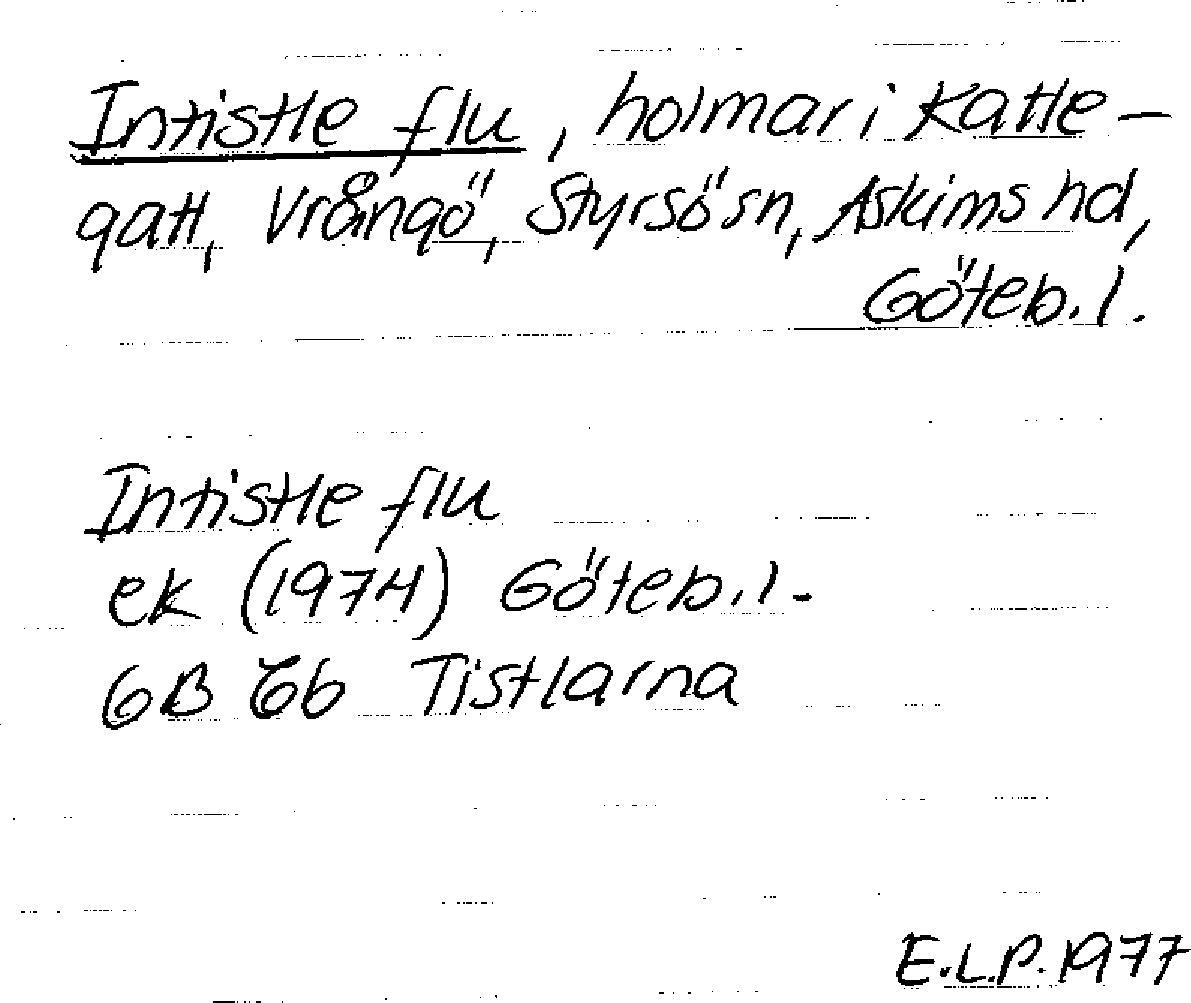 Intistle flu, holmar i Katte-
gatt, Vrångö, Styrsö sn, Askims hd,
Göteb. l.
Intistle flu
ek (1974) Göteb. l.
6B 6b Tistlarna
E.L.P. 1977